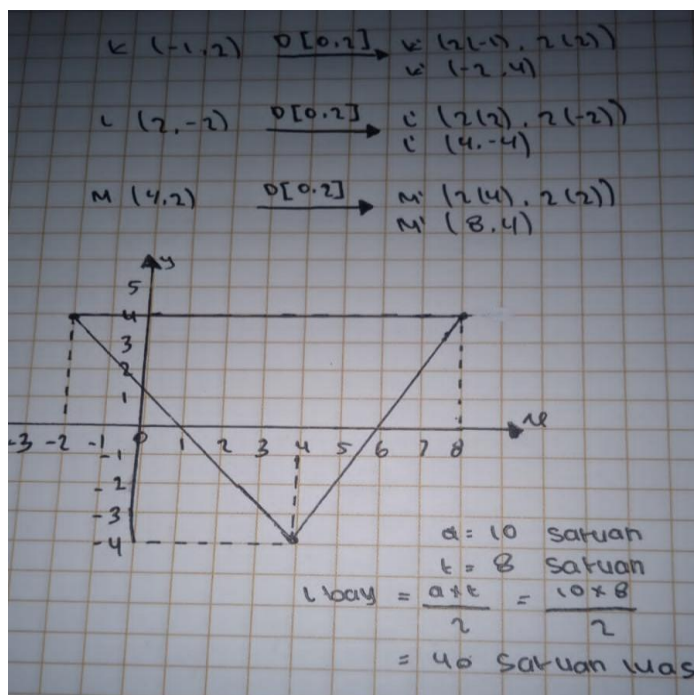 K (-1,2) D[0,2] K' (2(-1), 2(2))
K' (-2,4)
L (2,-2) D[0,2] L' (2(2), 2(-2))
L' (4,-4)
M (4,2) D[0,2] M' (2(4), 2(2))
M' (8,4)
y
5
4
3
2
1
-3 -2 -1 0 1 2 3 4 5 6 7 8 x
-1
-2
-3
-4
a = 10 satuan
t = 8 satuan
L bay = a×t/2 = 10×8/2
= 40 satuan luas